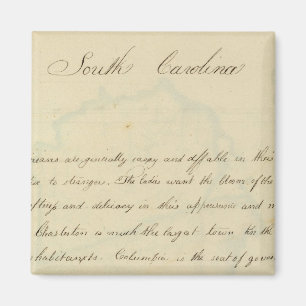 South Carolina
nians are generally easy and affable in their
tive to strangers. The ladies want the bloom of the
oftness and delicacy in their appearance and m
Charleston is much the largest town in the
nhabitants. Columbia is the seat of gover